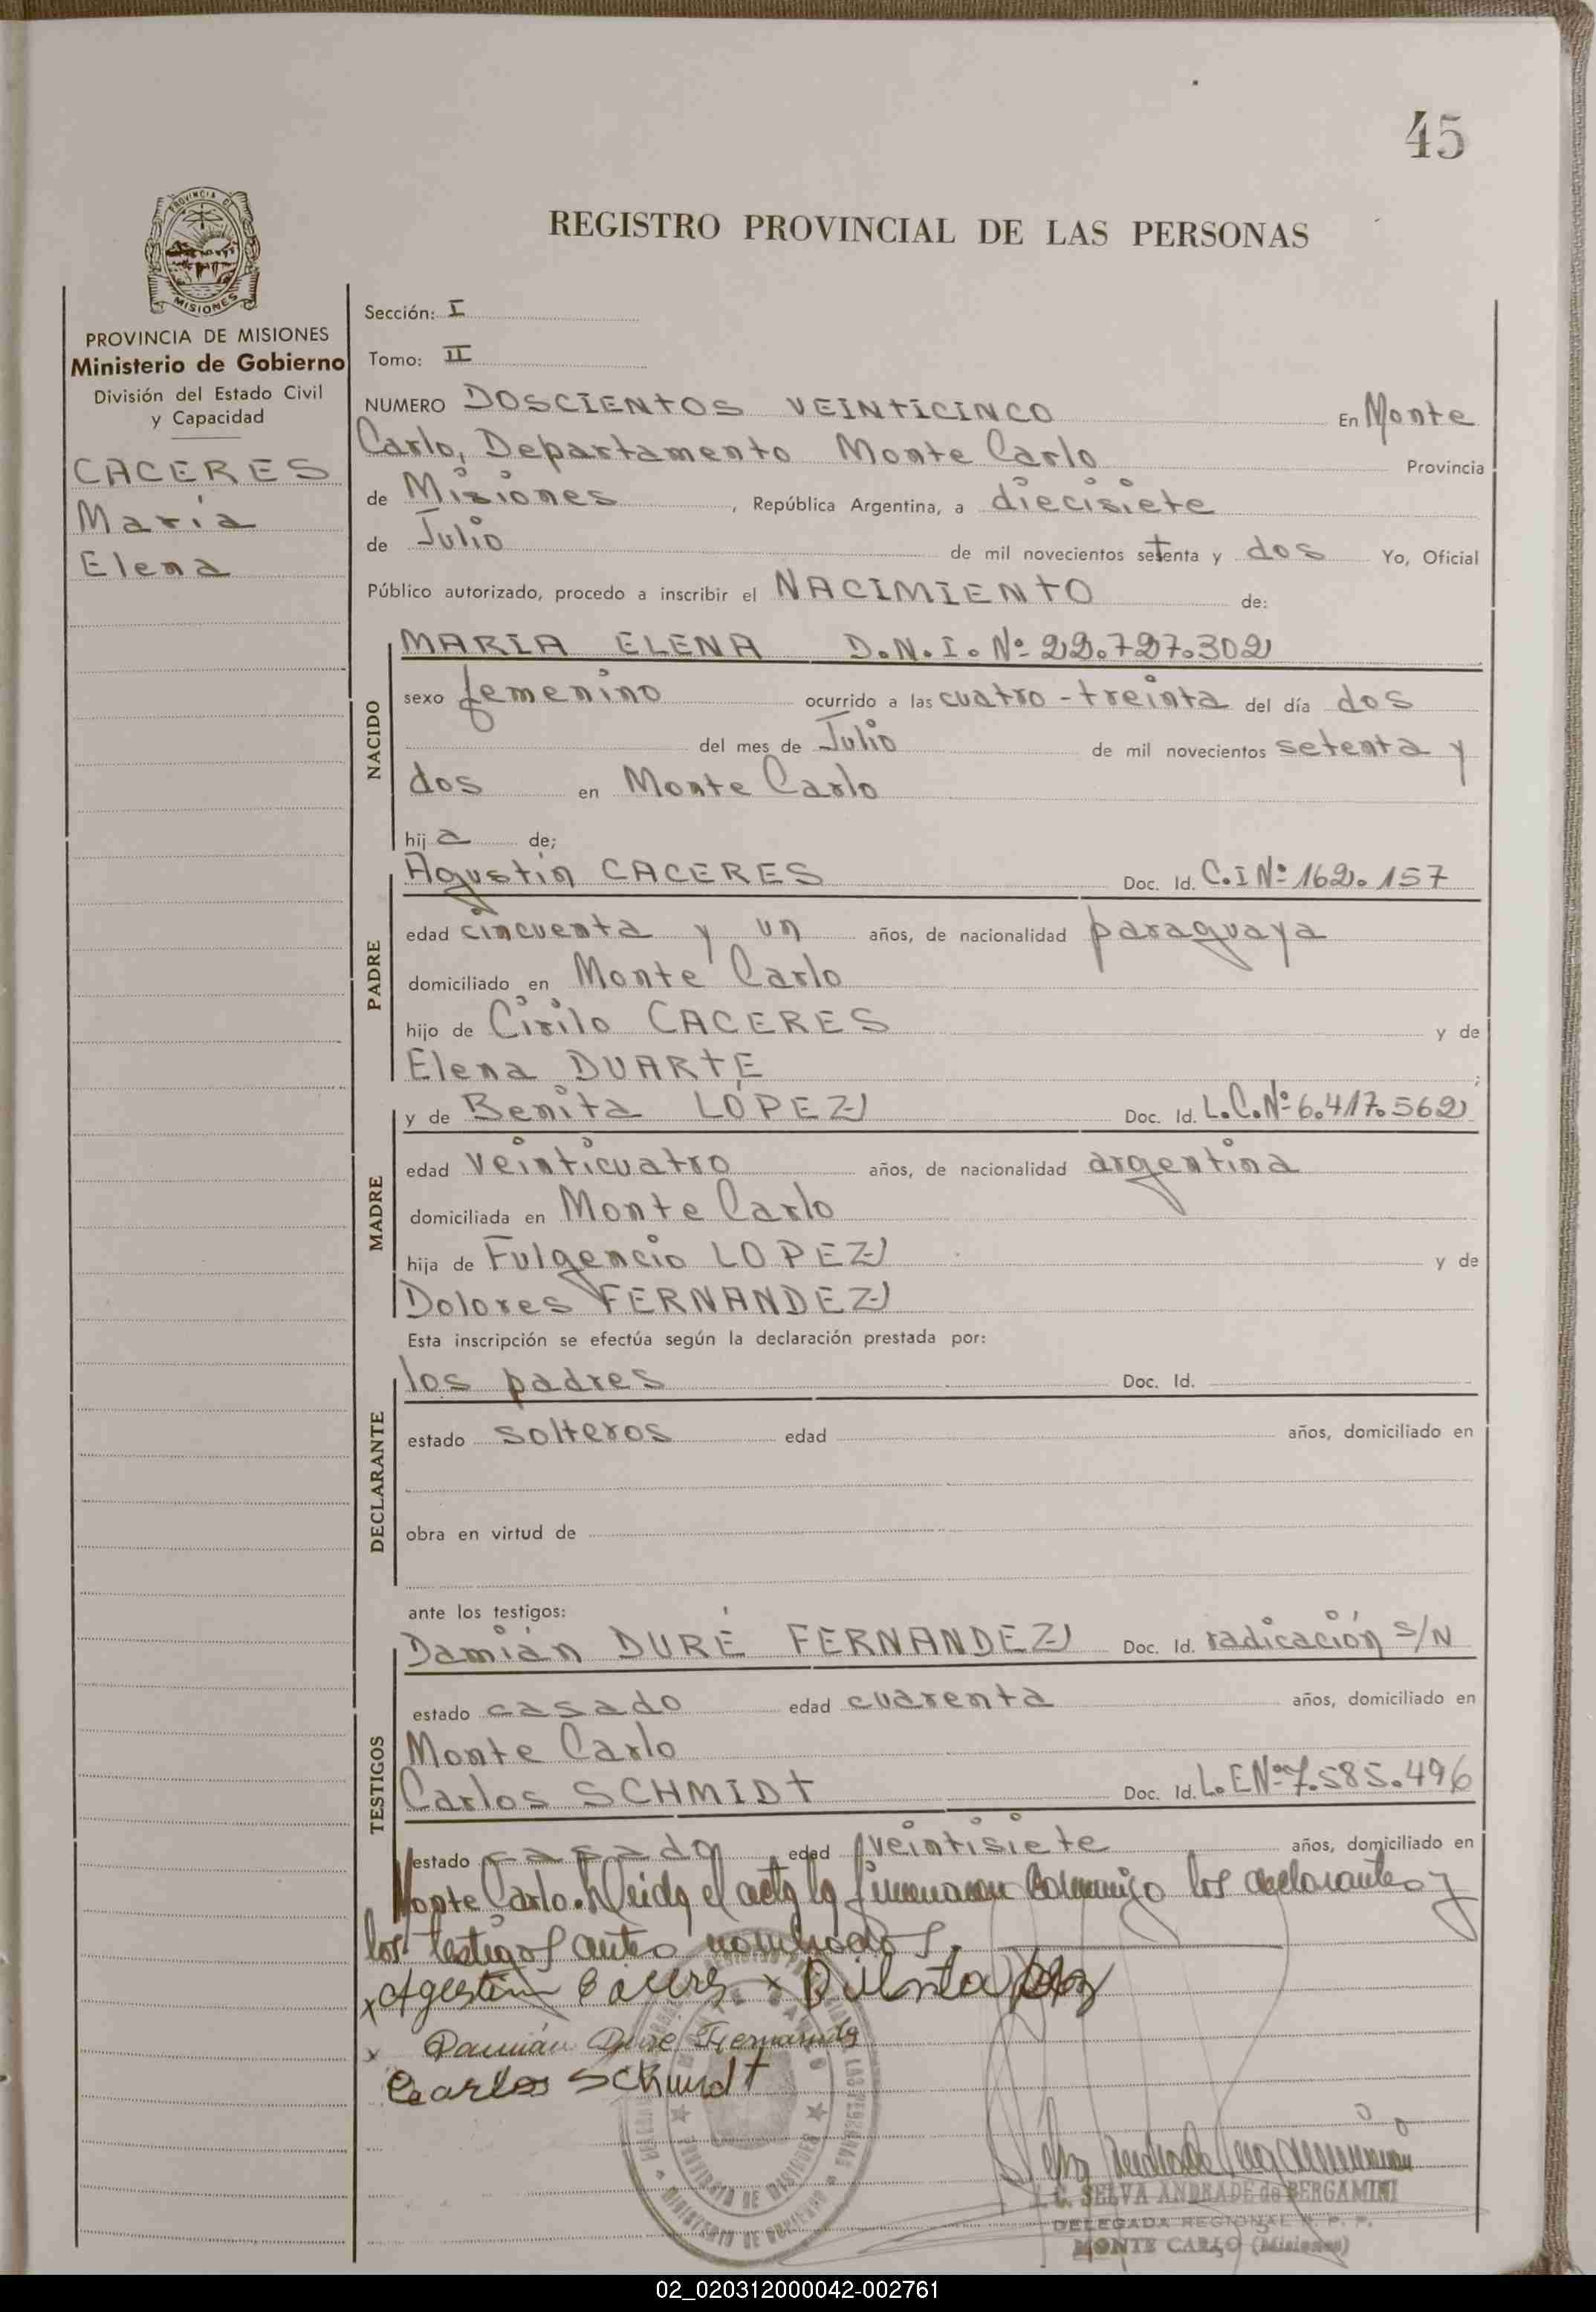 45
PROVINCIA DE
MISIONES
REGISTRO PROVINCIAL DE LAS PERSONAS
PROVINCIA DE MISIONES
Ministerio de Gobierno
División del Estado Civil
y Capacidad
CACERES
María
Elena
Sección: I
Tomo: II
NUMERO DOSCIENTOS VEINTICINCO En Monte
Carlo, Departamento Monte Carlo Provincia
de Misiones, República Argentina, a diecisiete
de Julio de mil novecientos setenta y dos Yo, Oficial
Público autorizado, procedo a inscribir el NACIMIENTO de:
NACIDO
MARIA ELENA D.N.I. Nº 22.727.302
sexo femenino ocurrido a las cuatro-treinta del día dos
del mes de Julio de mil novecientos setenta y
dos en Monte Carlo
hija de;
PADRE
Agustín CACERES Doc. Id. C.I Nº 162.157
edad cincuenta y un años, de nacionalidad paraguaya
domiciliado en Monte Carlo
hijo de Cirilo CACERES y de
Elena DUARTE;
MADRE
y de Benita LÓPEZ Doc. Id. L.C.Nº 6.417.562
edad veinticuatro años, de nacionalidad argentina
domiciliada en Monte Carlo
hija de Fulgencio LOPEZ y de
Dolores FERNANDEZ
Esta inscripción se efectúa según la declaración prestada por:
DECLARANTE
los padres Doc. Id.
estado solteros edad años, domiciliado en
obra en virtud de
ante los testigos:
TESTIGOS
Damián DURÉ FERNANDEZ Doc. Id. radicación s/N
estado casado edad cuarenta años, domiciliado en
Monte Carlo
Carlos SCHMIDT Doc. Id. L.E Nº 7.585.496
estado casado edad veintisiete años, domiciliado en
Monte Carlo. Leida el acta la firmaron conmigo los declarantes y
los testigos antes nombrados.
x Agustin Caceres x
x Damián Duré Fernandez
Carlos Schmidt
PROVINCIA DE MISIONES
MINISTERIO DE GOBIERNO
C. SELVA ANDRADE de BERGAMINI
DELEGADA REGIONAL R. P. P.
MONTE CARLO (Misiones)
02_020312000042-002761